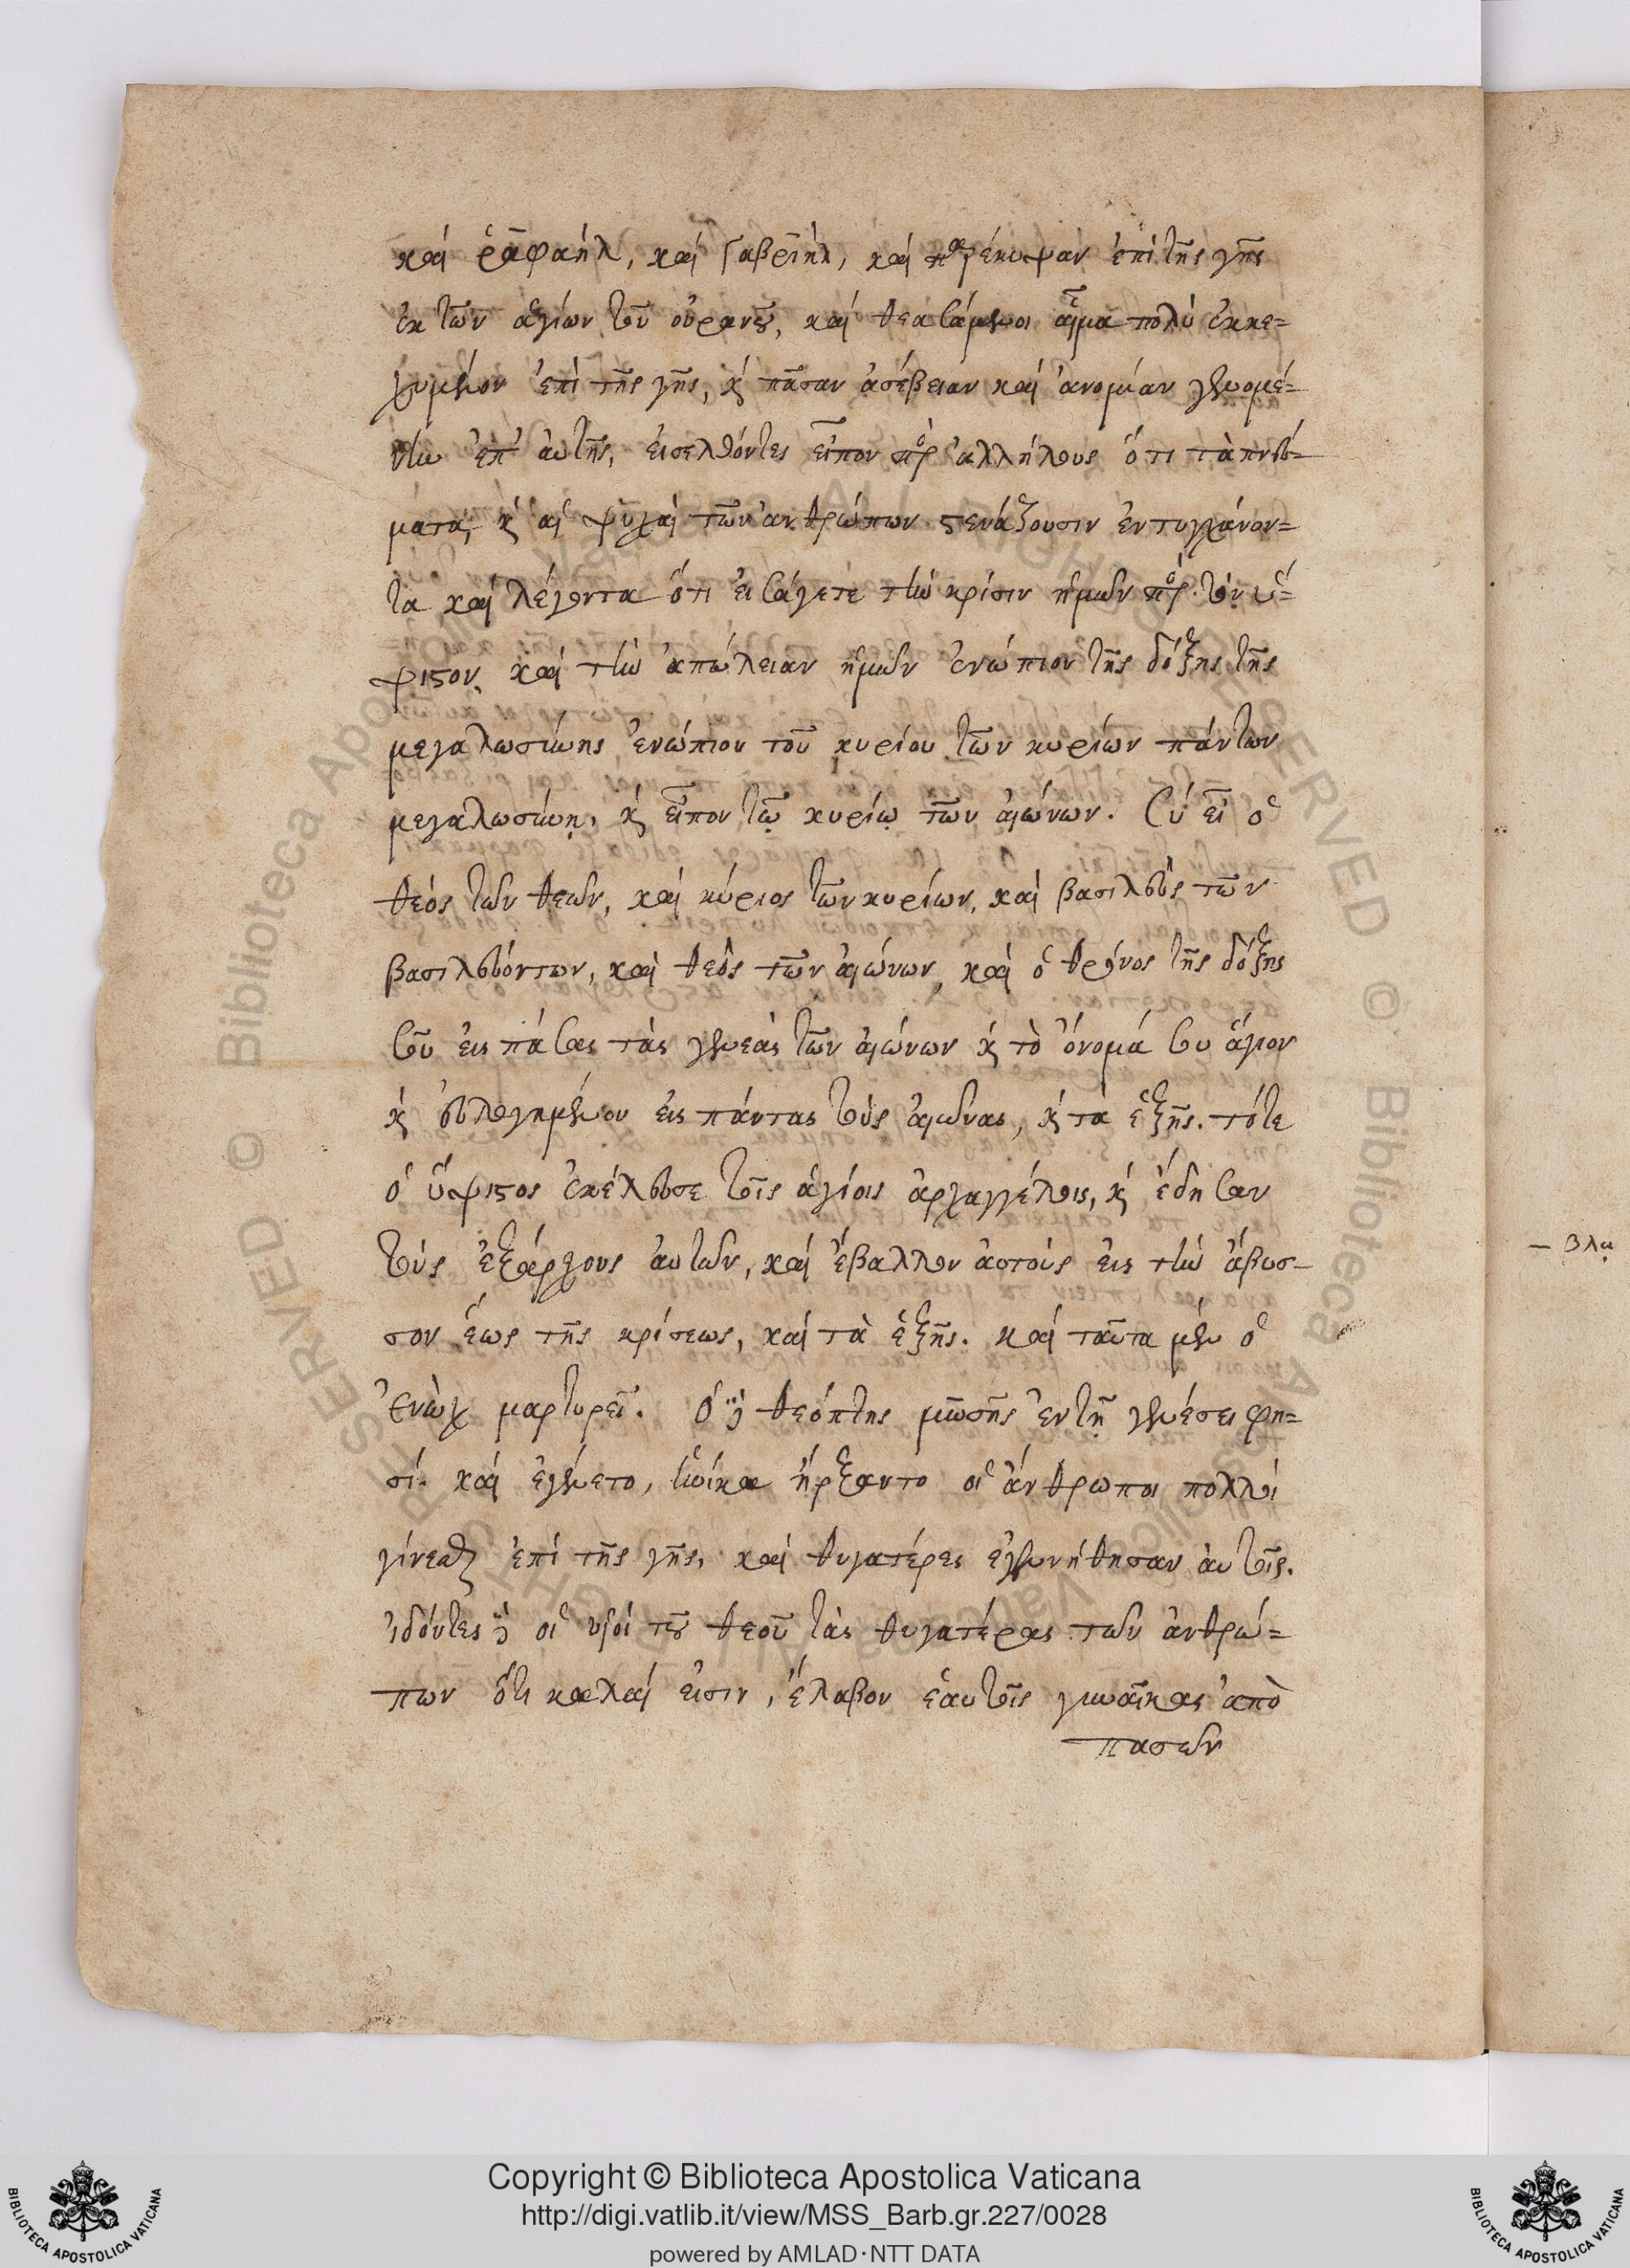 καὶ ῥαφαὴλ, καὶ Γαβριὴλ, καὶ παρέκυψαν ἐπὶ τῆς γῆς
ἐκ τῶν ἁγίων τοῦ οὐρανοῦ, καὶ θεασάμενοι αἷμα πολὺ ἐκκε=
χυμένον ἐπὶ τῆς γῆς, ϗ πᾶσαν ἀσέβειαν καὶ ἀνομίαν γενομέ=
νην ἐπ' ἀυτῆς, εἰσελθόντες εἶπον πρὸς ἀλλήλους ὅτι τὰ πνεύ=
ματα, ϗ αἱ ψυχαὶ τῶν ἀνθρώπων στενάζουσιν ἐντυγχάνον=
τα καὶ λέγοντα ὅτι εἰσάγετε τὴν κρίσιν ἡμῶν πρὸς τὸν ὕ=
ψιστον, καὶ τὴν ἀπώλειαν ἡμῶν ἐνώπιον τῆς δόξης τῆς
μεγαλωσύνης ἐνώπιον τοῦ κυρίου τῶν κυρίων πάντων
μεγαλωσύνῃ, ϗ εἶπον τῷ κυρίῳ τῶν αἰώνων. Σὺ εἶ ὁ
θεὸς τῶν θεῶν, καὶ κύριος τῶν κυρίων, καὶ βασιλεὺς τῶν
βασιλευόντων, καὶ θεὸς τῶν αἰώνων, καὶ ὁ θρόνος τῆς δόξης
σοῦ εἰς πάσας τὰς γενεὰς τῶν αἰώνων ϗ τὸ ὄνομά σου ἅγιον
ϗ εὐλογημένον εἰς πάντας τοὺς αἰῶνας, ϗ τὰ ἑξῆς. τότε
ὁ ὕψιστος ἐκέλευσε τοῖς ἁγίοις ἀρχαγγέλοις, ϗ ἔδησαν
τοὺς ἐξάρχους ἀυτῶν, καὶ ἔβαλλον ἀυτοὺς εἰς τὴν ἄβυσ-
σον ἕως τῆς κρίσεως, καὶ τὰ ἑξῆς. καὶ ταῦτα μὲν ὁ
Ἐνὼχ μαρτυρεῖ. Ὁ δὲ θεόπτης μωσῆς ἐν τῇ γενέσει φη=
σί. καὶ ἐγένετο, ἡνίκα ἤρξαντο οἱ ἄνθρωποι πολλοὶ
γίνεσθαι ἐπὶ τῆς γῆς, καὶ θυγατέρες ἐγεννήθησαν ἀυτοῖς.
ἰδόντες δὲ οἱ υἱοὶ τοῦ θεοῦ τὰς θυγατέρας τῶν ἀνθρώ=
πων ὅτι καλαὶ εἰσιν, ἔλαβον ἑαυτοῖς γυναῖκας ἀπὸ
πασῶν
Copyright © Biblioteca Apostolica Vaticana
http://digi.vatlib.it/view/MSS_Barb.gr.227/0028
powered by AMLAD·NTT DATA
BIBLIOTECA APOSTOLICA VATICANA
BIBLIOTECA APOSTOLICA VATICANA